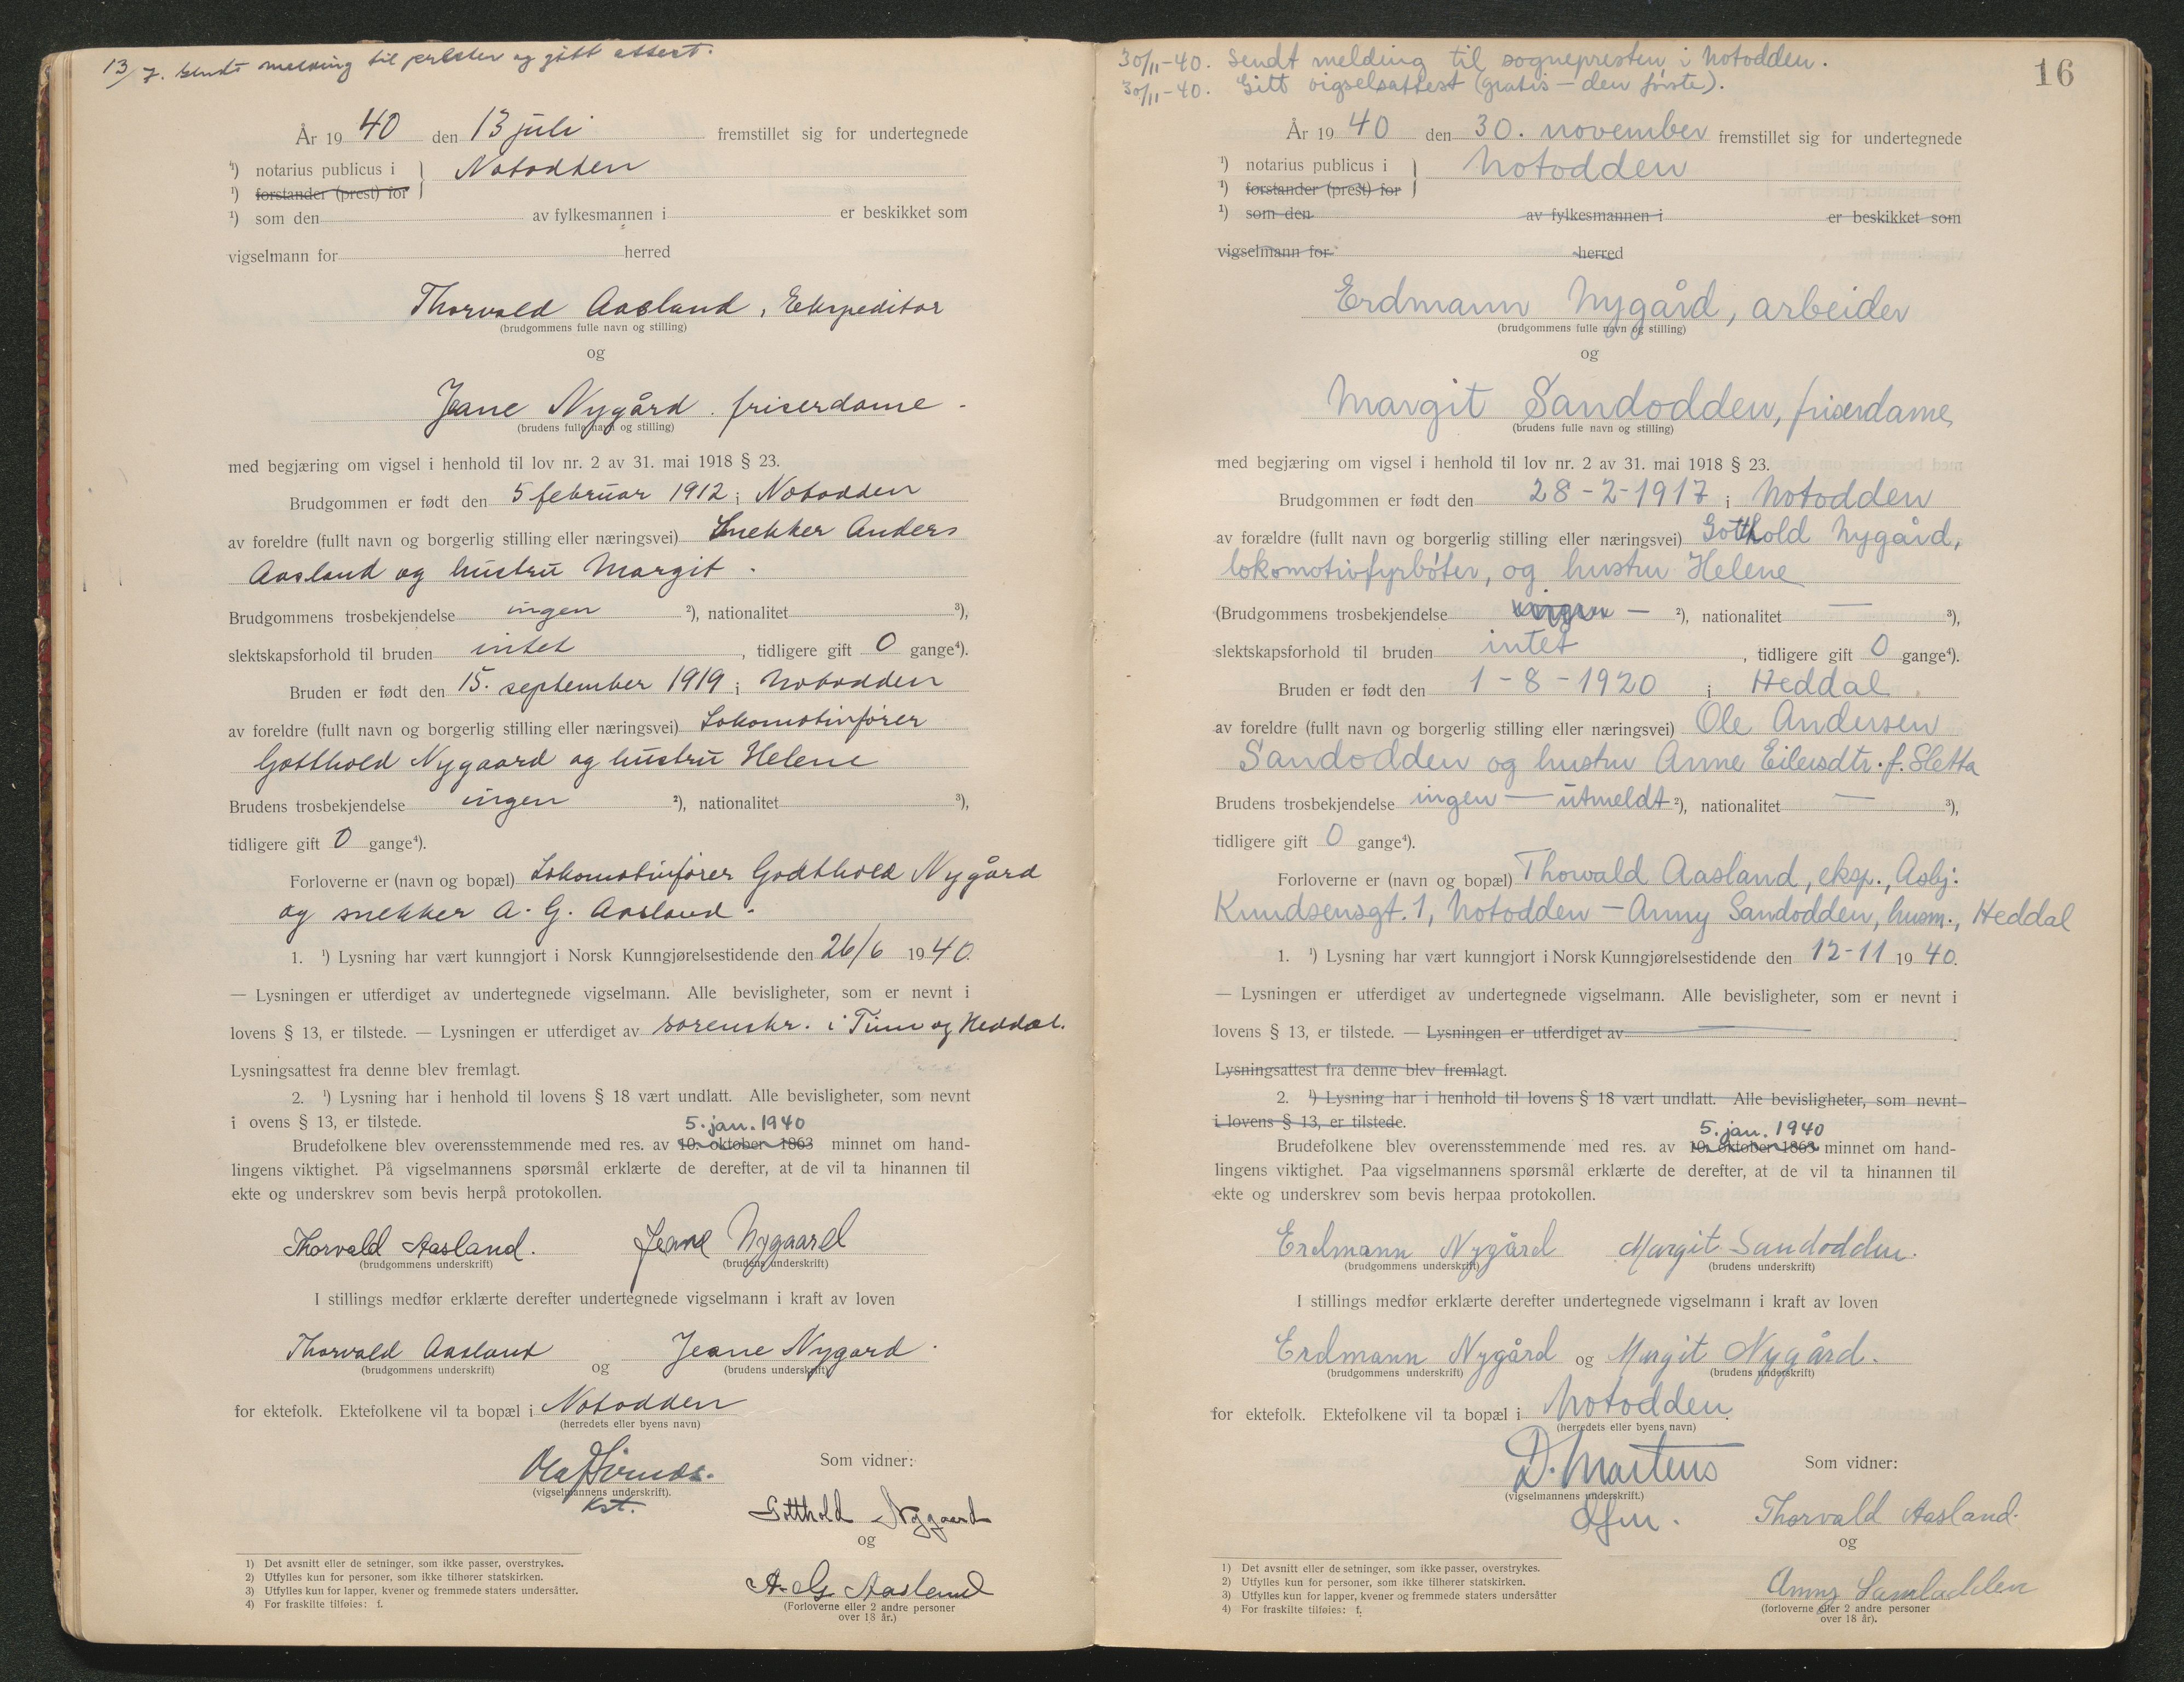 13/7. Sendt melding til presten og gitt attest.
År 19 40 den 13 juli fremstillet sig for undertegnede
¹) notarius publicus i } Notodden
¹) forstander (prest) for
¹) som den av fylkesmannen i er beskikket som
vigselmann for herred
Thorvald Aasland, Ekspeditør
(brudgommens fulle navn og stilling)
og
Jeane Nygård. friserdame.
(brudens fulle navn og stilling)
med begjæring om vigsel i henhold til lov nr. 2 av 31. mai 1918 § 23.
Brudgommen er født den 5 februar 1912 i Notodden
av foreldre (fullt navn og borgerlig stilling eller næringsvei) Snekker Anders
Aasland og hustru Margit.
Brudgommens trosbekjendelse ingen ²), nationalitet ³),
slektskapsforhold til bruden intet, tidligere gift 0 gange⁴).
Bruden er født den 15. september 1919 i Notodden
av foreldre (fullt navn og borgerlig stilling eller næringsvei) Lokomotivfører
Gotthold Nygaard og hustru Helene
Brudens trosbekjendelse ingen ²), nationalitet ³),
tidligere gift 0 gange⁴).
Forloverne er (navn og bopæl) Lokomotivfører Godthold Nygård
og snekker A. G. Aasland.
1. ¹) Lysning har vært kunngjort i Norsk Kunngjørelsestidende den 26/6 1940.
— Lysningen er utferdiget av undertegnede vigselmann. Alle bevisligheter, som er nevnt i
lovens § 13, er tilstede. — Lysningen er utferdiget av sorenskr. i Tinn og Heddal.
Lysningsattest fra denne blev fremlagt.
2. ¹) Lysning har i henhold til lovens § 18 vært undlatt. Alle bevisligheter, som nevnt
i ovens § 13, er tilstede.
5. jan. 1940
Brudefolkene blev overensstemmende med res. av 10. oktober 1863 minnet om hand-
lingens viktighet. På vigselmannens spørsmål erklærte de derefter, at de vil ta hinannen til
ekte og underskrev som bevis herpå protokollen.
Thorvald Aasland. Jeane Nygaard
(brudgommens underskrift) (brudens underskrift)
I stillings medfør erklærte derefter undertegnede vigselmann i kraft av loven
Thorvald Aasland og Jeane Nygård.
(brudgommens underskrift) (brudens underskrift)
for ektefolk. Ektefolkene vil ta bopæl i Notodden
(herredets eller byens navn)
Som vidner:
(vigselmannens underskrift).
kst.
Gotthold Nygaard
og
A. G. Aasland
(Forloverne eller 2 andre personer
over 18 år.)
1) Det avsnitt eller de setninger, som ikke passer, overstrykes.
2) Utfylles kun for personer, som ikke tilhører statskirken.
3) Utfylles kun for lapper, kvener og fremmede staters undersåtter.
4) For fraskilte tilføies: f.
30/11-40. Sendt melding til sognepresten i Notodden.
30/11-40. Gitt vigselsattest (gratis – den første).
16
År 19 40 den 30. november fremstillet sig for undertegnede
¹) notarius publicus i } Notodden
¹) forstander (prest) for
¹) som den av fylkesmannen i er beskikket som
vigselmann for herred
Erdmann Nygård, arbeider
(brudgommens fulle navn og stilling)
og
Margit Sandodden, friserdame
(brudens fulle navn og stilling)
med begjæring om vigsel i henhold til lov nr. 2 av 31. mai 1918 § 23.
Brudgommen er født den 28-2-1917 i Notodden
av forældre (fullt navn og borgerlig stilling eller næringsvei) Gotthold Nygård,
lokomotivfyrbøter, og hustru Helene
(Brudgommens trosbekjendelse ingen — ²), nationalitet — ³),
slektskapsforhold til bruden intet, tidligere gift 0 gange⁴).
Bruden er født den 1-8-1920 i Heddal.
av foreldre (fullt navn og borgerlig stilling eller næringsvei) Ole Andersen
Sandodden og hustru Anne Eilersdtr. f. Sletta
Brudens trosbekjendelse ingen — utmeldt ²), nationalitet — ³),
tidligere gift 0 gange⁴).
Forloverne er (navn og bopæl) Thorvald Aasland, eksp., Asbj.
Knudsensgt. 1, Notodden – Anny Sandodden, husm., Heddal
1. ¹) Lysning har vært kunngjort i Norsk Kunngjørelsestidende den 12-11 1940.
— Lysningen er utferdiget av undertegnede vigselmann. Alle bevisligheter, som er nevnt i
lovens § 13, er tilstede. — Lysningen er utferdiget av —
Lysningsattest fra denne blev fremlagt.
2. ¹) Lysning har i henhold til lovens § 18 vært undlatt. Alle bevisligheter, som nevnt
i lovens § 13, er tilstede.
5. jan. 1940
Brudefolkene blev overensstemmende med res. av 10. oktober 1863 minnet om hand-
lingens viktighet. Paa vigselmannens spørsmål erklærte de derefter, at de vil ta hinannen til
ekte og underskrev som bevis herpaa protokollen.
Erdmann Nygård Margit Sandodden.
(brudgommens underskrift) (brudens underskrift)
I stillings medfør erklærte derefter undertegnede vigselmann i kraft av loven
Erdmann Nygård og Margit Nygård.
(brudgommens underskrift) (brudens underskrift)
for ektefolk. Ektefolkene vil ta bopæl i Notodden
(herredets eller byens navn)
D. Martens
Som vidner:
(vigselmannens underskrift.)
Thorvald Aasland.
og
Anny Sandodden
(forloverne eller 2 andre personer
over 18 år).
1) Det avsnitt eller de setninger, som ikke passer, overstrykes.
2) Utfylles kun for personer, som ikke tilhører statskirken.
3) Utfylles kun for lapper, kvener og fremmede staters undersåtter
4) For fraskilte tilføies: f.